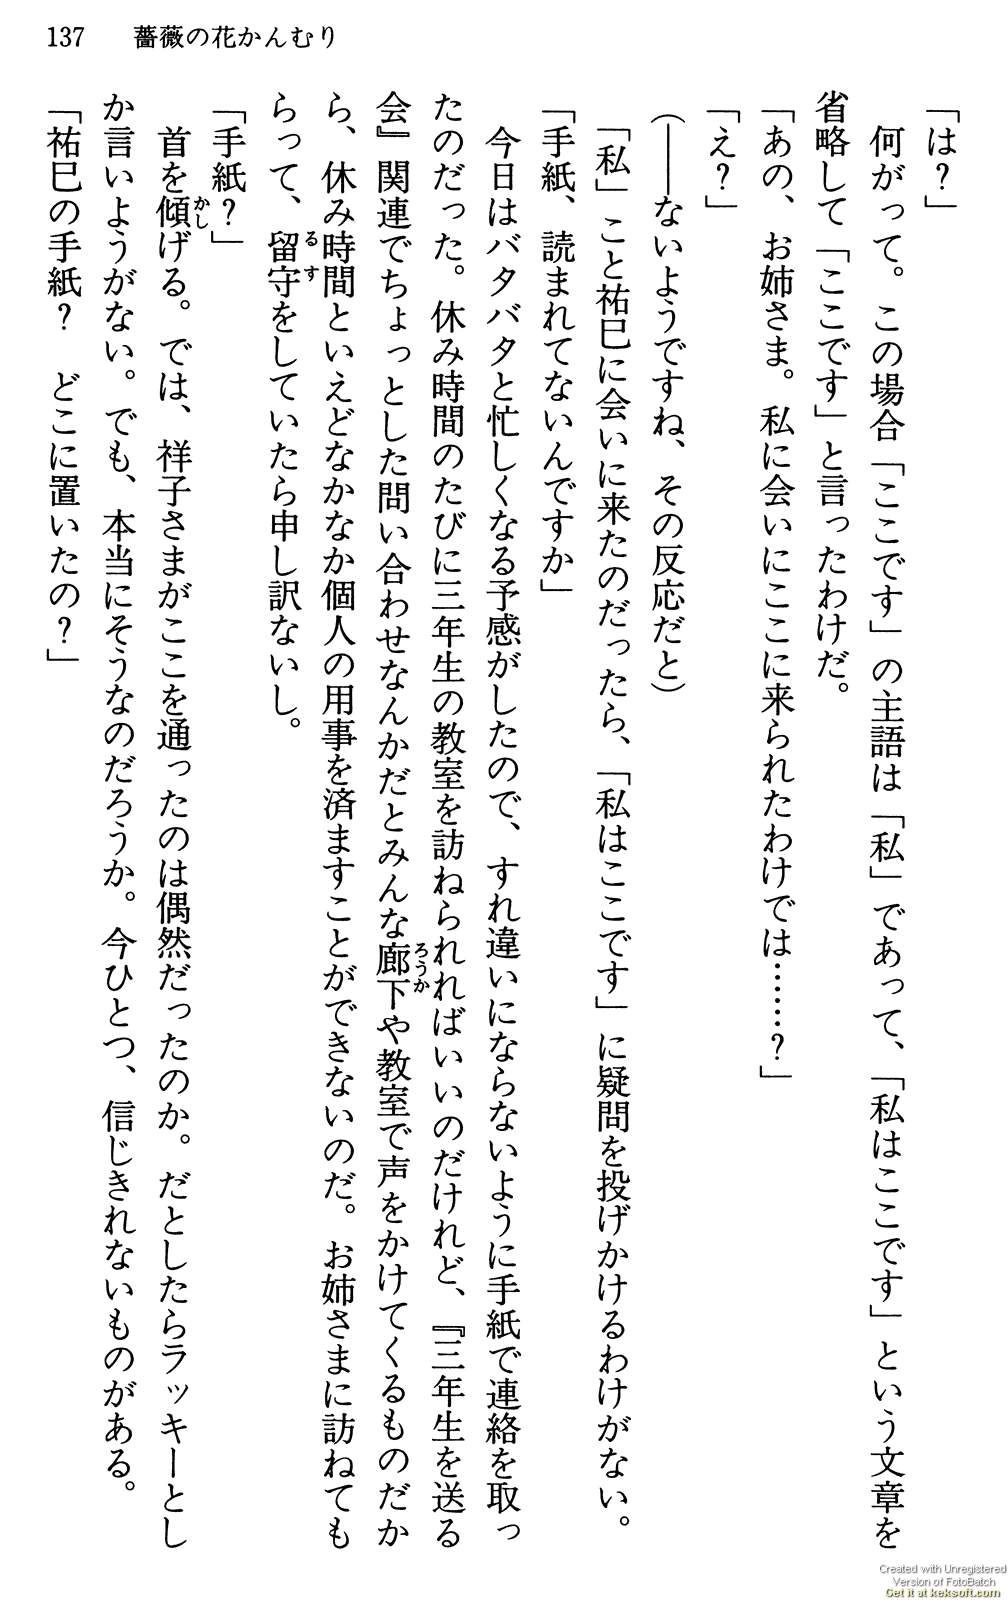 137 薔薇の花かんむり
「は？」
何がって。この場合「ここです」の主語は「私」であって、「私はここです」という文章を
省略して「ここです」と言ったわけだ。
「あの、お姉さま。私に会いにここに来られたわけでは……？」
「え？」
（――ないようですね、その反応だと）
「私」こと祐巳に会いに来たのだったら、「私はここです」に疑問を投げかけるわけがない。
「手紙、読まれてないんですか」
今日はバタバタと忙しくなる予感がしたので、すれ違いにならないように手紙で連絡を取っ
たのだった。休み時間のたびに三年生の教室を訪ねられればいいのだけれど、『三年生を送る
会』関連でちょっとした問い合わせなんかだとみんな廊下や教室で声をかけてくるものだか
ら、休み時間といえどなかなか個人の用事を済ますことができないのだ。お姉さまに訪ねても
らって、留守をしていたら申し訳ないし。
「手紙？」
首を傾げる。では、祥子さまがここを通ったのは偶然だったのか。だとしたらラッキーとし
か言いようがない。でも、本当にそうなのだろうか。今ひとつ、信じきれないものがある。
「祐巳の手紙？　どこに置いたの？」
ろうか
るす
かし
Created with Unregistered
Version of FotoBatch
Get it at keksoft.com